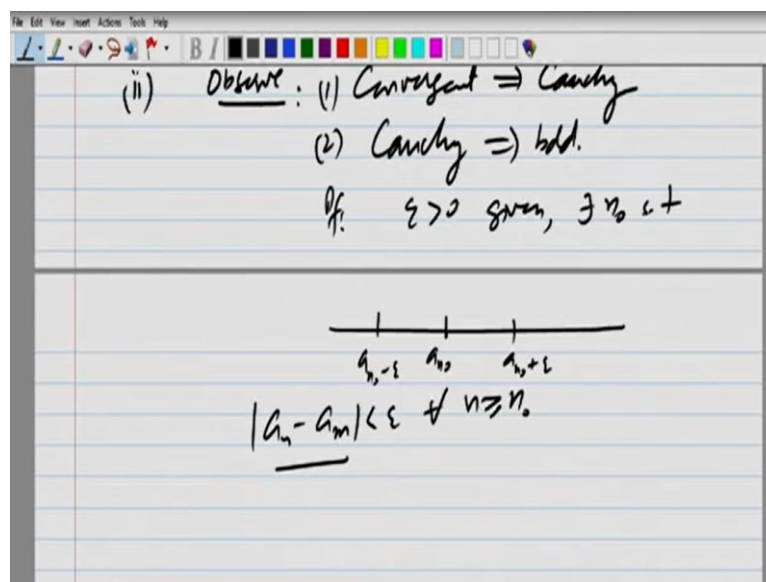 File Edit View Insert Actions Tools Help
B I
(ii) Observe : (1) Convergent ⇒ Cauchy
(2) Cauchy ⇒ bdd.
Pf. ε>0 given, ∃ n₀ s.t
aₙ₀-ε aₙ₀ aₙ₀+ε
|aₙ - aₘ| < ε ∀ n ≥ n₀